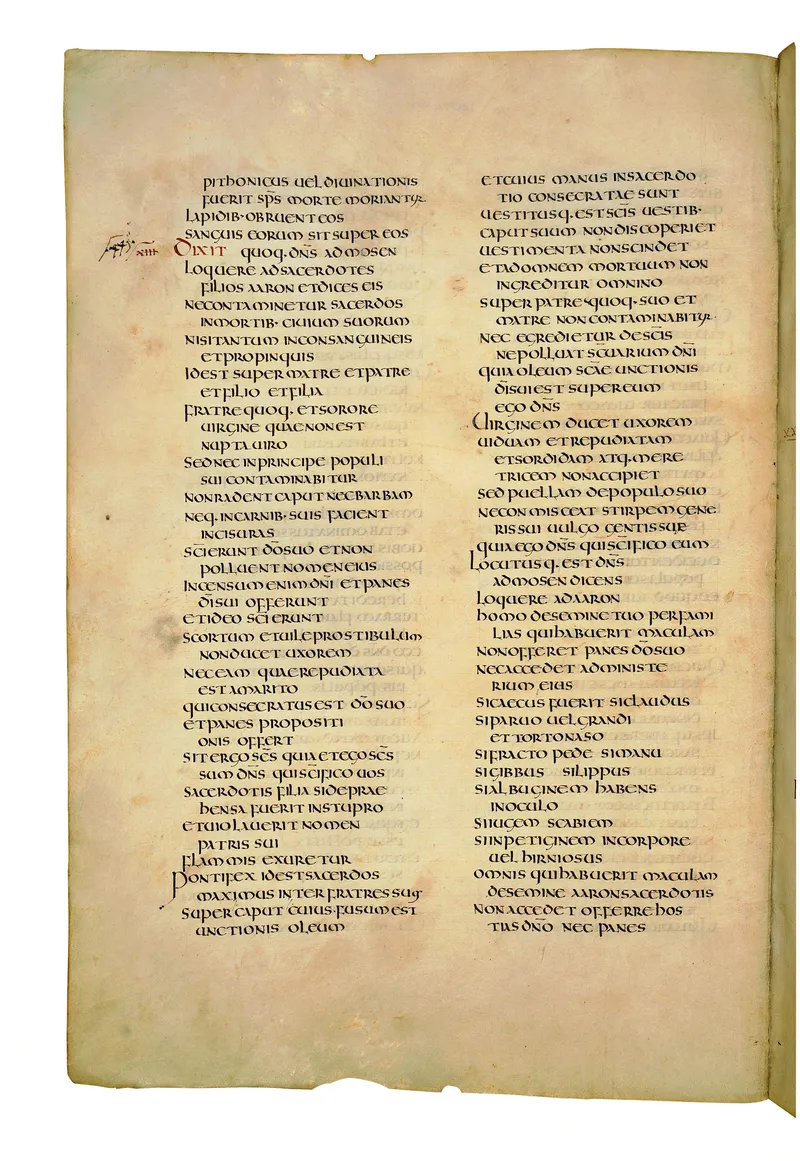 PITHONICUS UEL DIUINATIONIS
FUERIT SP̅S MORTE MORIANTUR
LAPIDIB· OBRUENT EOS
SANGUIS EORUM SIT SUPER EOS
XIIII DIXIT QUOQ· DN̅S AD MOSEN
LOQUERE AD SACERDOTES
FILIOS AARON ET DICES EIS
NE CONTAMINETUR SACERDOS
IN MORTIB· CIUIUM SUORUM
NISI TANTUM IN CONSANGUINEIS
ET PROPINQUIS
ID EST SUPER MATRE ET PATRE
ET FILIO ET FILIA
FRATRE QUOQ· ET SORORE
UIRGINE QUAE NON EST
NUPTA UIRO
SED NEC IN PRINCIPE POPULI
SUI CONTAMINABITUR
NON RADENT CAPUT NEC BARBAM
NEQ· IN CARNIB· SUIS FACIENT
INCISURAS
SC̅I ERUNT DO̅ SUO ET NON
POLLUENT NOMEN EIUS
INCENSUM ENIM DN̅I ET PANES
DI̅ SUI OFFERUNT
ET IDEO SC̅I ERUNT
SCORTUM ET UILE PROSTIBULUM
NON DUCET UXOREM
NEC EAM QUAE REPUDIATA
EST A MARITO
QUI CONSECRATUS EST DO̅ SUO
ET PANES PROPOSITI
ONIS OFFERT
SIT ERGO SC̅S QUIA ET EGO SC̅S
SUM DN̅S QUI SC̅IFICO UOS
SACERDOTIS FILIA SI DEPRAE
HENSA FUERIT IN STUPRO
ET UIOLAUERIT NOMEN
PATRIS SUI
FLAMMIS EXURETUR
PONTIFEX ID EST SACERDOS
MAXIMUS INTER FRATRES SUOS
SUPER CAPUT CUIUS· FUSUM EST
UNCTIONIS OLEUM
ET CUIUS MANUS IN SACERDO
TIO CONSECRATAE SUNT
UESTITUSQ· EST SC̅IS UESTIB·
CAPUT SUUM NON DISCOPERIET
UESTIMENTA NON SCINDET
ET AD OMNEM MORTUUM NON
INGREDITUR OMNINO
SUPER PATRE QUOQ· SUO ET
MATRE NON CONTAMINABITUR
NEC EGREDIETUR DE SC̅IS
NE POLLUAT SC̅UARIUM DN̅I
QUIA OLEUM SC̅AE UNCTIONIS
DI̅ SUI EST SUPER EUM
EGO DN̅S
UIRGINEM DUCET UXOREM
UIDUAM ET REPUDIATAM
ET SORDIDAM ATQ· MERE
TRICEM NON ACCIPIET
SED PUELLAM DE POPULO SUO
NE CONMISCEAT STIRPEM GENE
RIS SUI UULGO GENTIS SUAE
QUIA EGO DN̅S QUI SC̅IFICO EUM
LOCUTUSQ· EST DN̅S
AD MOSEN DICENS
LOQUERE AD AARON
HOMO DE SEMINE TUO PER FAMI
LIAS QUI HABUERIT MACULAM
NON OFFERET PANES DO̅ SUO
NEC ACCEDET AD MINISTE
RIUM EIUS
SI CAECUS FUERIT SI CLAUDUS
SI PARUO UEL GRANDI
ET TORTO NASO
SI FRACTO PEDE SI MANU
SI GIBBUS SI LIPPUS
SI ALBUGINEM HABENS
IN OCULO
SI IUGEM SCABIEM
SI INPETIGINEM IN CORPORE
UEL HIRNIOSUS
OMNIS QUI HABUERIT MACULAM
DE SEMINE AARON SACERDOTIS
NON ACCEDET OFFERRE HOS
TIAS DN̅O NEC PANES